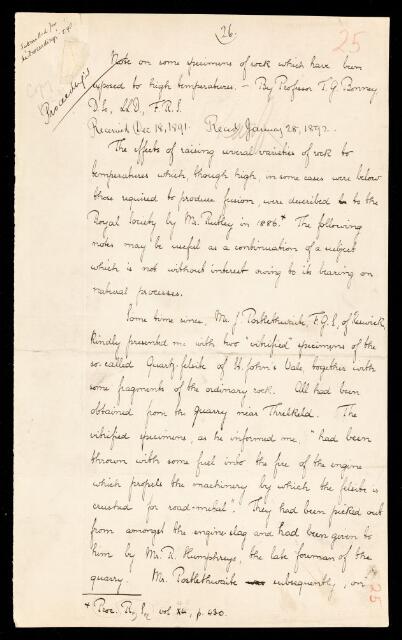 26.
25
Submitted for
Proceedings
Note on some specimens of rock which have been
exposed to high temperatures. — By Professor T. G. Bonney
D.Sc., LL.D., F.R.S.
Received Dec 18, 1891. Read January 28, 1892.
The effects of raising several varieties of rock to
temperatures which, though high, in some cases were below
those required to produce fusion, were described to the
Royal Society by Mr. Rutley in 1886.+ The following
notes may be useful as a continuation of a subject
which is not without interest owing to its bearing on
natural processes.
Some time since, Mr. J. Postlethwaite, F.G.S., of Keswick,
kindly presented me with two "vitrified" specimens of the
so-called Quartz-felsite of St John's Vale, together with
some fragments of the ordinary rock. All had been
obtained from the quarry near Threlkeld. The
vitrified specimens, as he informed me, "had been
thrown with some fuel into the fire of the engine
which propels the machinery by which the felsite is
crushed for road-metal". They had been picked out
from amongst the engine slag and had been given to
him by Mr. R. Humphreys, the late foreman of the
quarry. Mr. Postlethwaite subsequently, on
25
+ Proc. Ry Sy vol XL, p. 430.